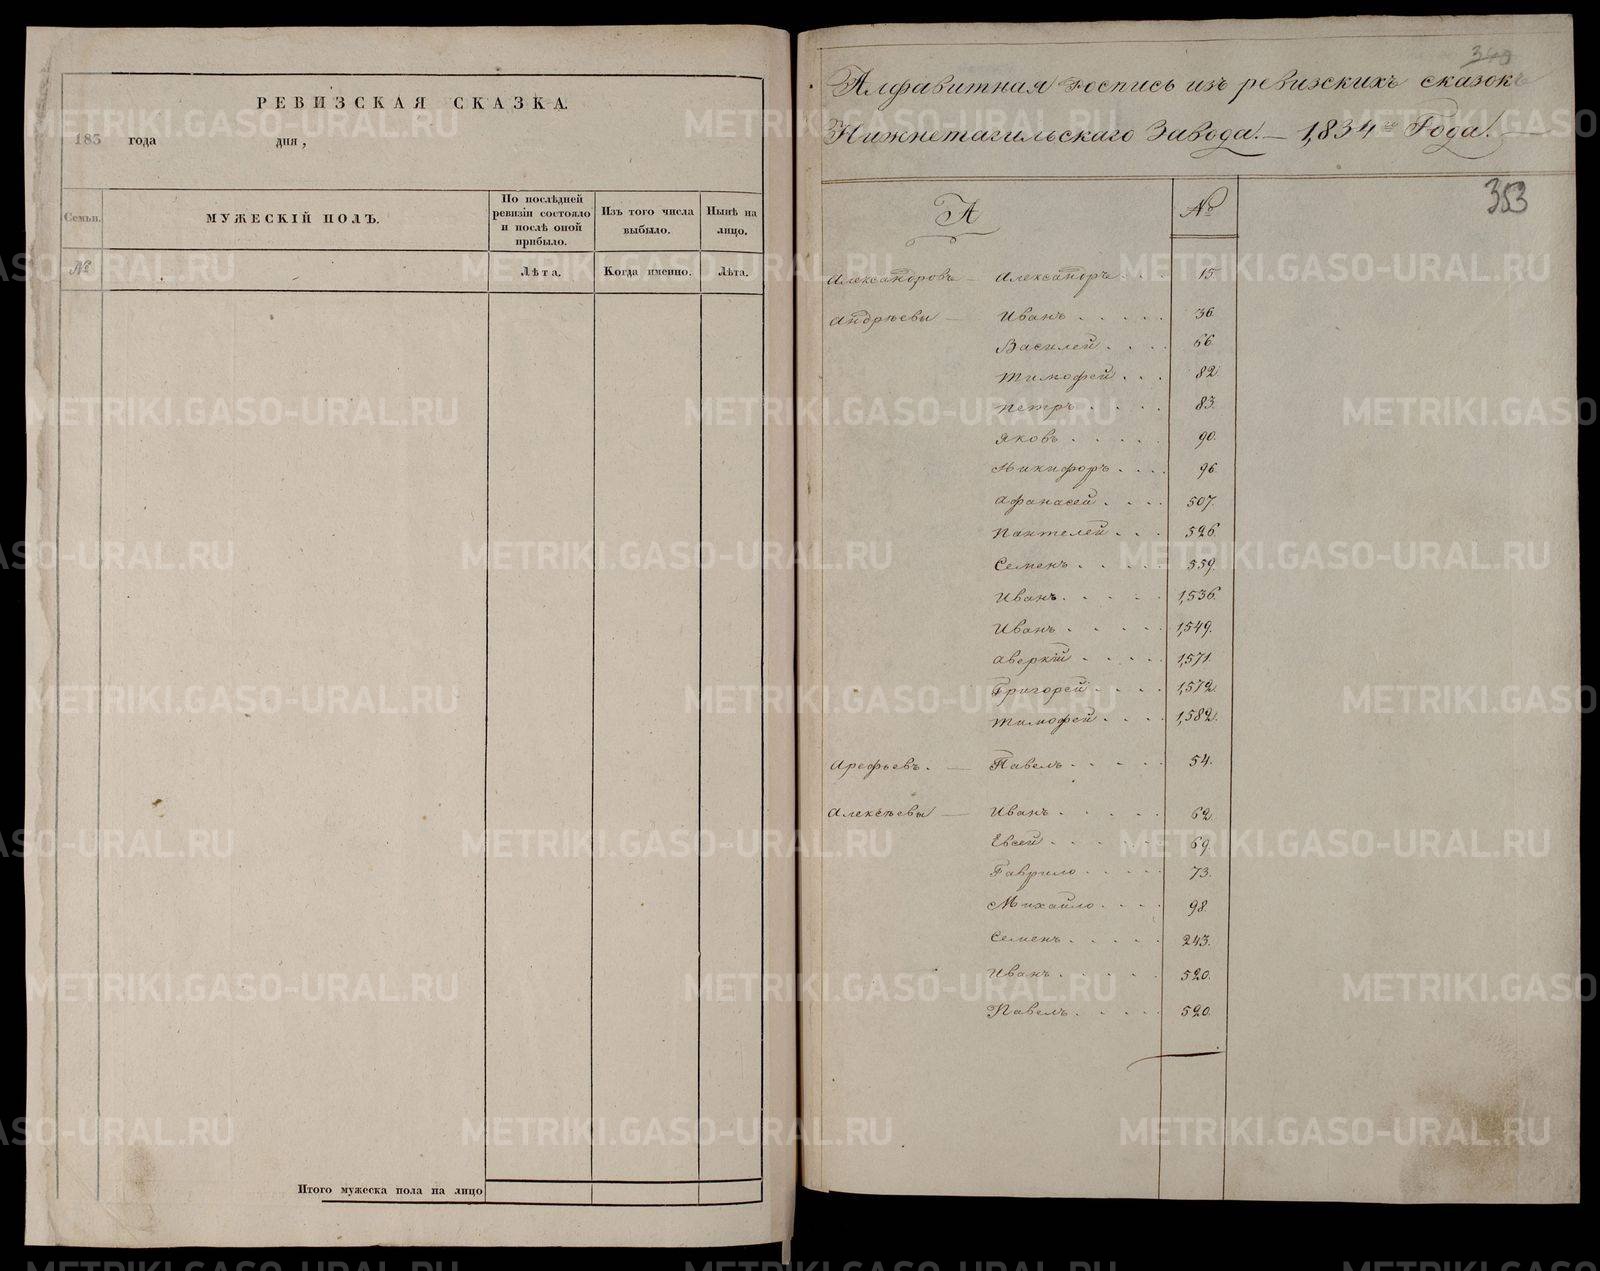 РЕВИЗСКАЯ СКАЗКА.
183 года дня,
Семьи.
МУЖЕСКІЙ ПОЛЪ.
По послѣдней
ревизіи состояло
и послѣ оной
прибыло.
Изъ того числа
выбыло.
Нынѣ на
лицо.
№
Лѣта.
Когда именно.
Лѣта.
Итого мужеска пола на лицо
340
Алфавитная роспись изъ ревизскихъ сказокъ
Нижнетагильскаго Завода. — 1,834го Года. —
353
А №
Александровъ — Александръ . . . 15.
Андрѣевы — Иванъ . . . . . 36.
Василей . . . . 66.
Тимофей . . . 82.
Петръ . . . . 83.
Яковъ . . . . . 90.
Никифоръ . . . . 96.
Афанасей . . . . 507.
Пантелей . . . 526.
Семенъ . . . . . 559.
Иванъ . . . . . 1,536.
Иванъ . . . . . 1,549.
Аверкій . . . . . 1,571.
Григорей . . . . 1,572.
Тимофей . . . . 1,582.
Арефьевъ. — Павелъ . . . . . 54.
Алексѣевы — Иванъ . . . . . 62.
Евсей . . . . . 69.
Гаврило . . . . . 73.
Михайло . . . . 98.
Семенъ . . . . . 243.
Иванъ . . . . . 520.
Павелъ . . . . . 520.
METRIKI.GASO-URAL.RU